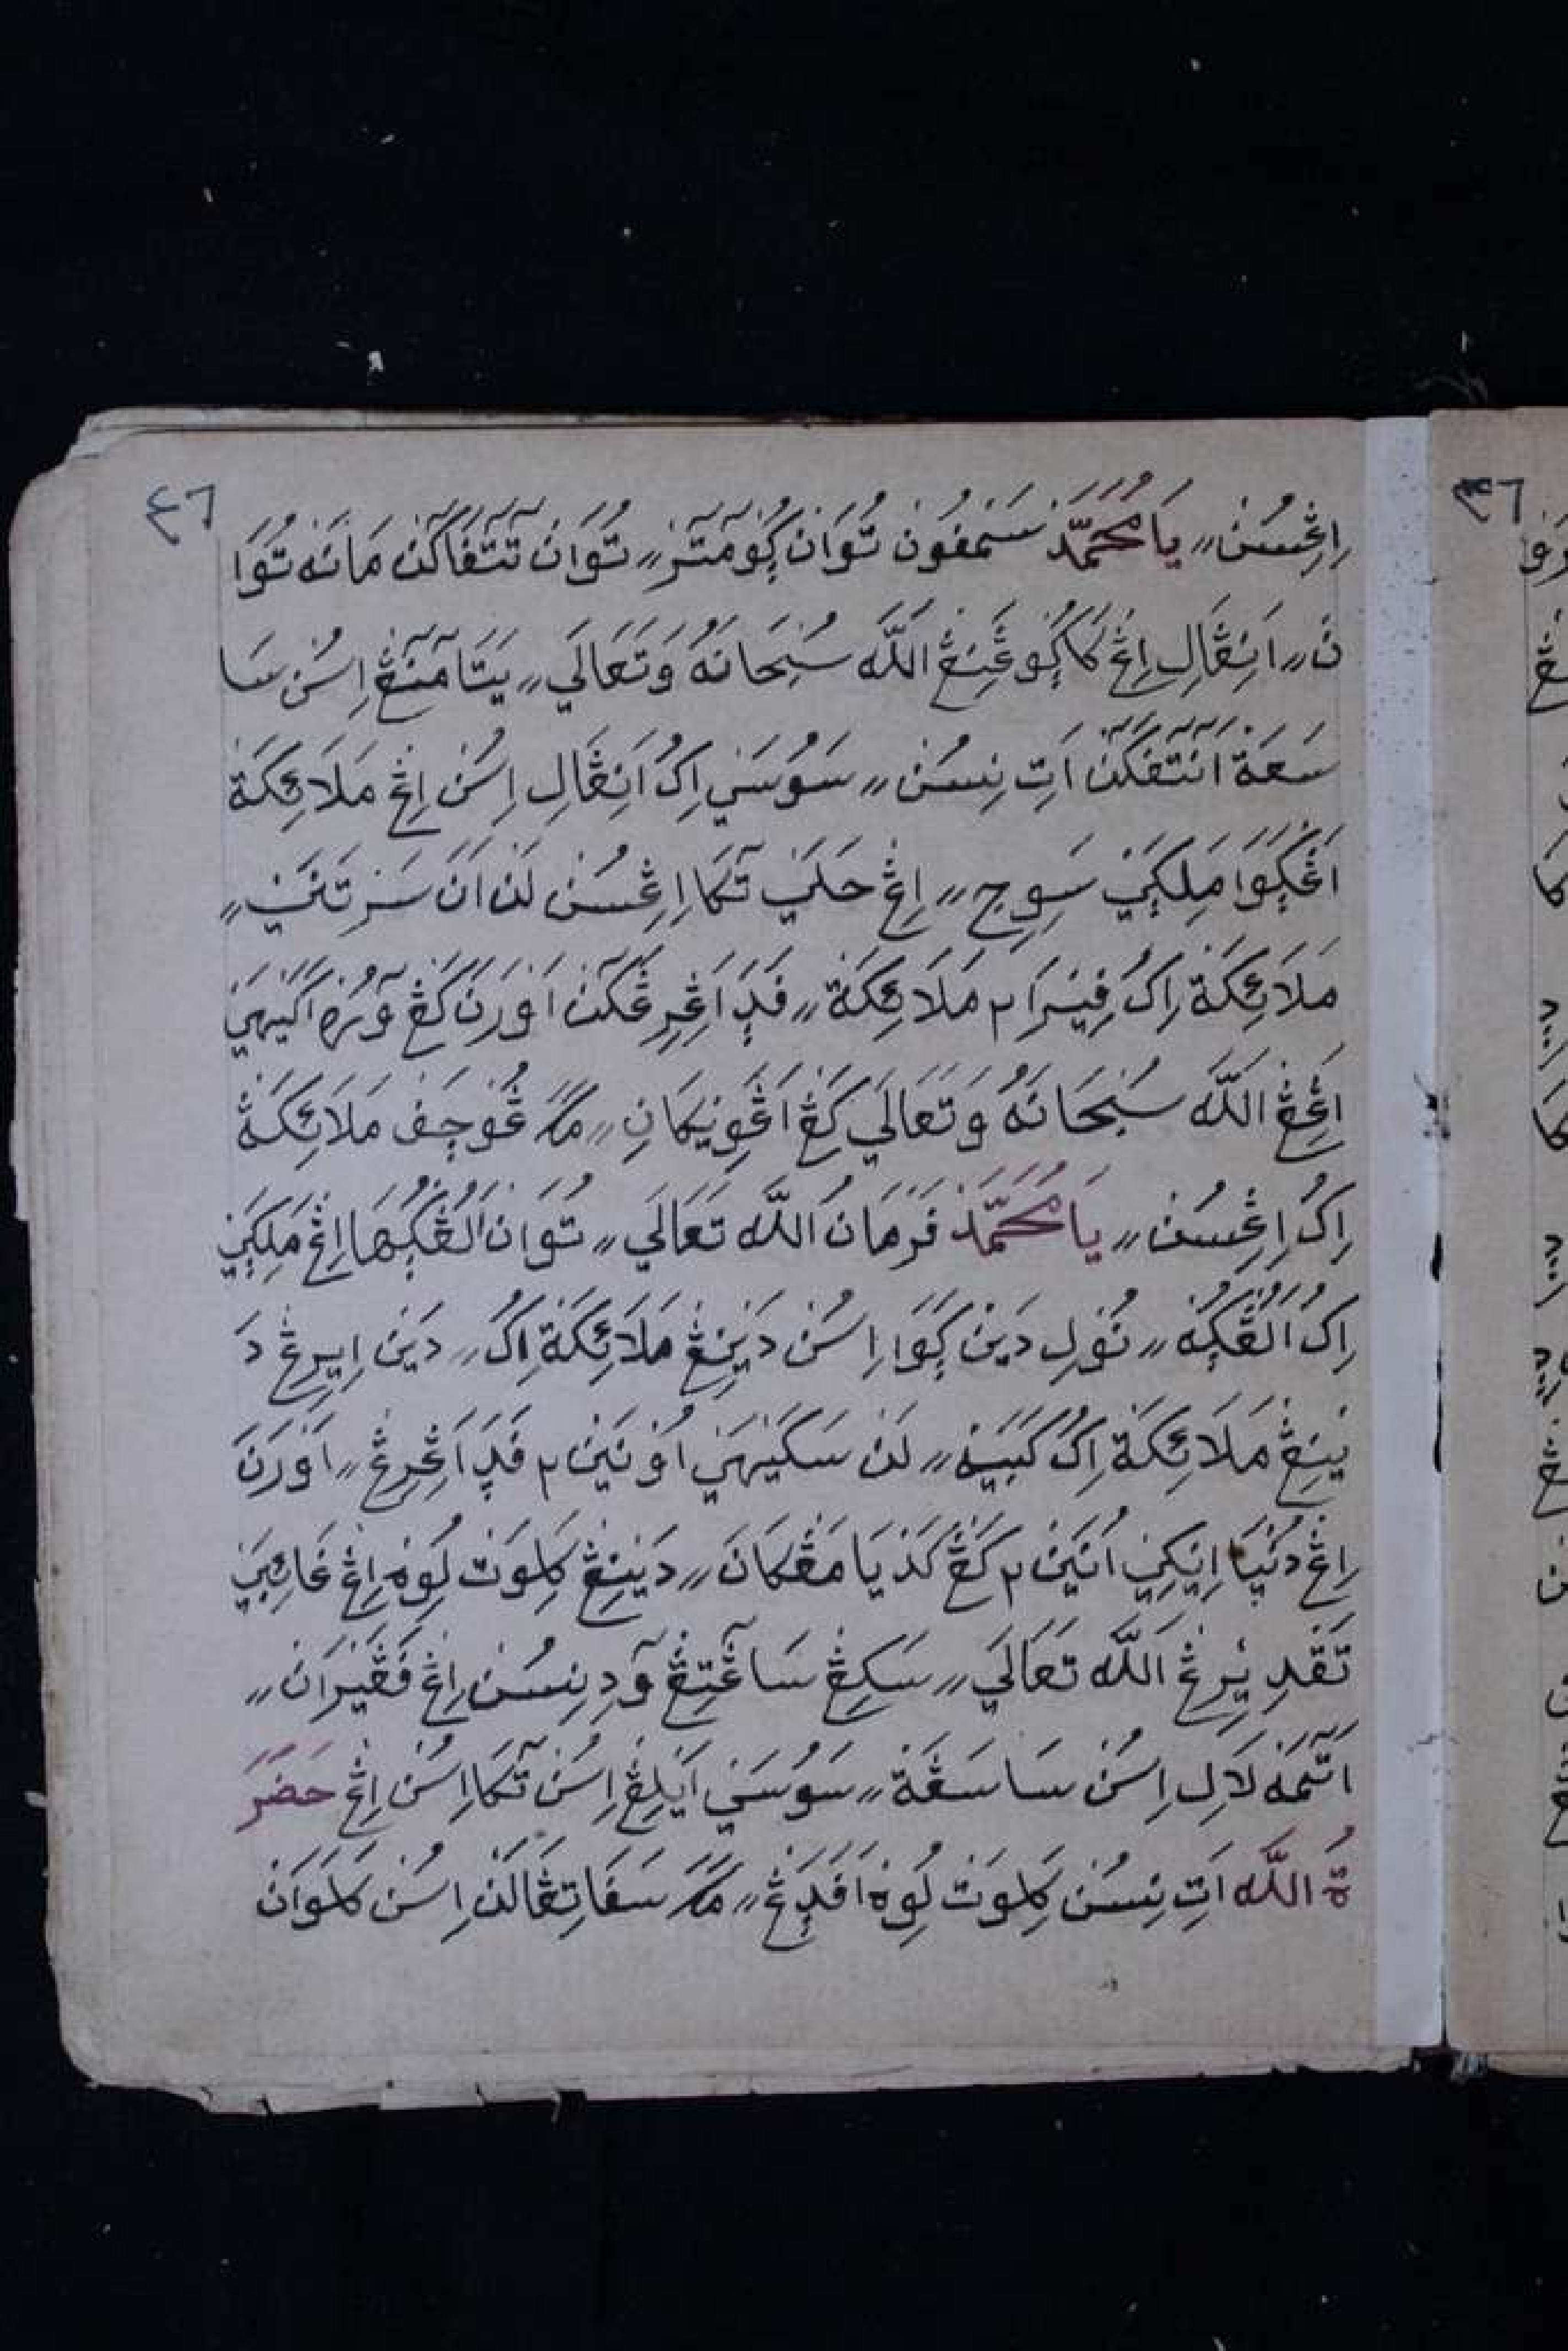 ٤٦
اِغْسُنْ ؍؍ يَا مُحَمَّدْ سَمْفُونْ تُوَانْ ڮُومَتَرْ ؍؍ تُوَانْ تَتَفَاكَنْ مَانَه تُوَا
نْ ؍؍ اَنِڠَالِ اِڠْ كَاڮُوڠَنِڠْ اللّٰه سُبْحَانَهُ وَتَعَالَي ؍؍ يَتَامَنِڠْ اِسُنْ سَا
سَعَةْ اَنْتَتَفَكَنْ اَتِ نِسُنْ ؍؍ سَوُسَنَي اِكُ اَنِڠَالِ اِسُنْ اِڠْ مَلَائِكَةْ
اَڠْڮَوَا مَلِڮَيْ سَوِجِ ؍؍ اِڠْ حَلَنْ تَكَا اِڠِسُنْ لَنْ اَنَ سَرْتَنَيْ ؍؍
مَلَائِكَةْ اِكُ فِيْرَا ٢ مَلَائِكَةْ ؍؍ فَدَ اَڠِرِڠَكَنْ اَوْرَنَ كَڠْ وَرُهْ اَكَيْهَيْ
اَڠِڠْ اللّٰه سُبْحَانَهُ وَتَعَالَي كَڠْ اَڠُونِيْكَانِ ؍؍ مَكَ ڠُوْجَفْ مَلَائِكَةْ
اِكُ اِڠِسُنْ ؍؍ يَا مُحَمَّدْ فَرْمَانْ اللّٰه تَعَالَي ؍؍ تُوَانْ اَلُڠْڮُهَا اِڠْ مَلِڮَيْ
اِكُ اَلُڠْڮُهْ ؍؍ نُوْلِ دَيْنْ ڮَوَا اِسُنْ دَيْنِڠْ مَلَائِكَةْ اِكُ ؍؍ دَيْنْ اِيْرِڠْ دَ
يْنِڠْ مَلَائِكَةْ اِكُ كَبَيْهْ ؍؍ لَنْ سَكَيْهَيْ اَوْنَيْنْ ٢ فَدَ اَڠِرِڠْ ؍؍ اَوْرَنَ
اِڠْ دُنْيَا اِيْكِيْ اُنَيْنْ ٢ كَڠْ كَدْيَا مَڠْكَانَ ؍؍ دَيْنِڠْ كَلِوَتْ لُوِهْ اِڠْ غَائِبَيْ
تَقْدِيْرِڠْ اللّٰه تَعَالَي ؍؍ سَكِڠْ سَاڠَتِڠْ وَدِ نِسُنْ اِڠْ فَڠَيْرَانْ ؍؍
اَتَمَهْ لَالِ اِسُنْ سَا سَڠَةْ ؍؍ سَوُسَنَي اَيْلِڠْ اِسُنْ تَكَا اِسُنْ اِڠْ حَضْرَ
ةُ اللّٰه اَتِ نِسُنْ كَلِوَتْ لُوِهْ اَفَدَڠْ ؍؍ مَكَ سَفَاتِڠَالَنْ اِسُنْ كَلَوَانْ